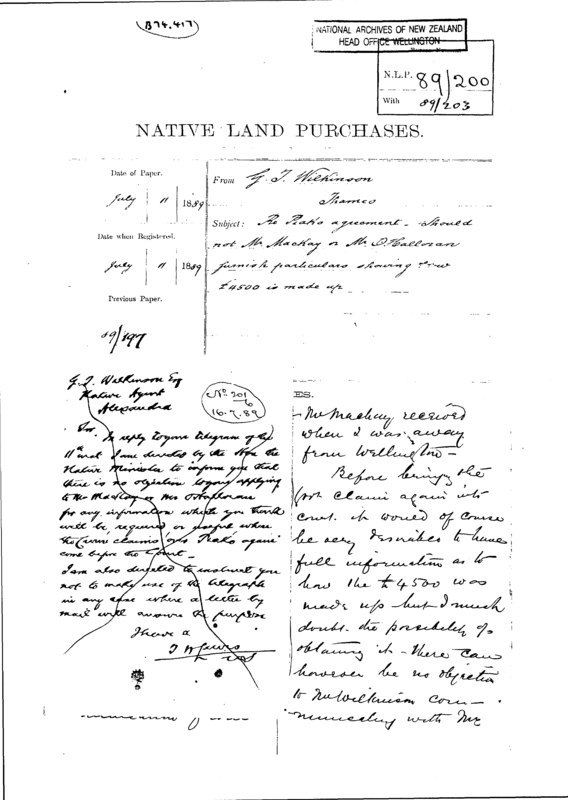 (B74.417)
NATIONAL ARCHIVES OF NEW ZEALAND
HEAD OFFICE WELLINGTON
N.L.P. 89/200
With 89/203
NATIVE LAND PURCHASES.
Date of Paper.
July 11 1889
Date when Registered.
July 11 1889
Previous Paper.
89/197
From G. T. Wilkinson
Thames
Subject: Re Peaks agreement - Should
not Mr Mackay or Mr O'Halloran
furnish particulars showing how
£4500 is made up
G. T. Wilkinson Esq
Native Agent
Alexandra
No 201/6
16.7.89
Sir
In reply to your telegram of the
11th inst I am directed by the Hon the
Native Minister to inform you that
there is no objection to your applying
to Mr Mackay or Mr O'Halloran
for any information which you think
will be required or useful when
the claims again
come before the Court.
I am also directed to instruct you
not to make use of the telegraph
in any case where a letter by
mail will answer the purpose
I have &
T W Lewis
ES.
- Mr Mackay received
when I was away
from Wellington -
Before bringing the
claim again into
court it would of course
be very desirable to have
full information as to
how the £4500 was
made up - but I much
doubt the possibility of
obtaining it - There can
however be no objection
to Mr Wilkinson com-
municating with Mr